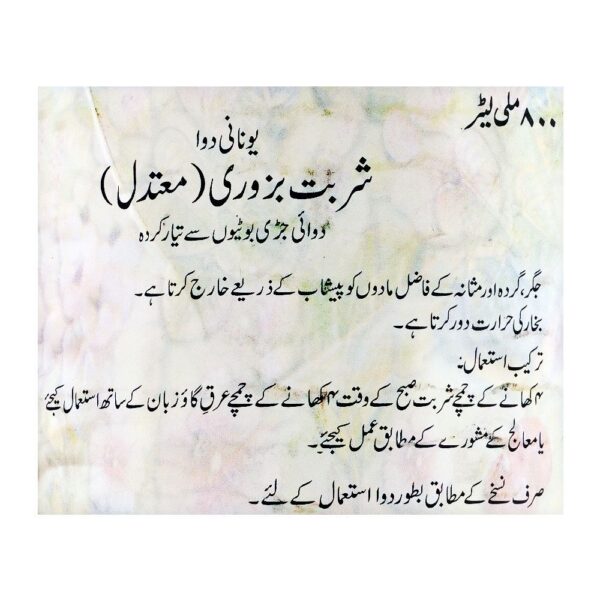 ۸۰۰ ملی لیٹر
یونانی دوا
شربت بزوری (معتدل)
دوائی جڑی بوٹیوں سے تیار کردہ
جگر، گردہ اور مثانہ کے فاضل مادوں کو پیشاب کے ذریعے خارج کرتا ہے۔
بخار کی حرارت دور کرتا ہے۔
ترکیب استعمال:
۴ کھانے کے چمچے شربت صبح کے وقت ۴ کھانے کے چمچے عرق گاؤزبان کے ساتھ استعمال کیجئے
یا معالج کے مشورے کے مطابق عمل کیجئے۔
صرف نسخے کے مطابق بطور دوا استعمال کے لئے۔